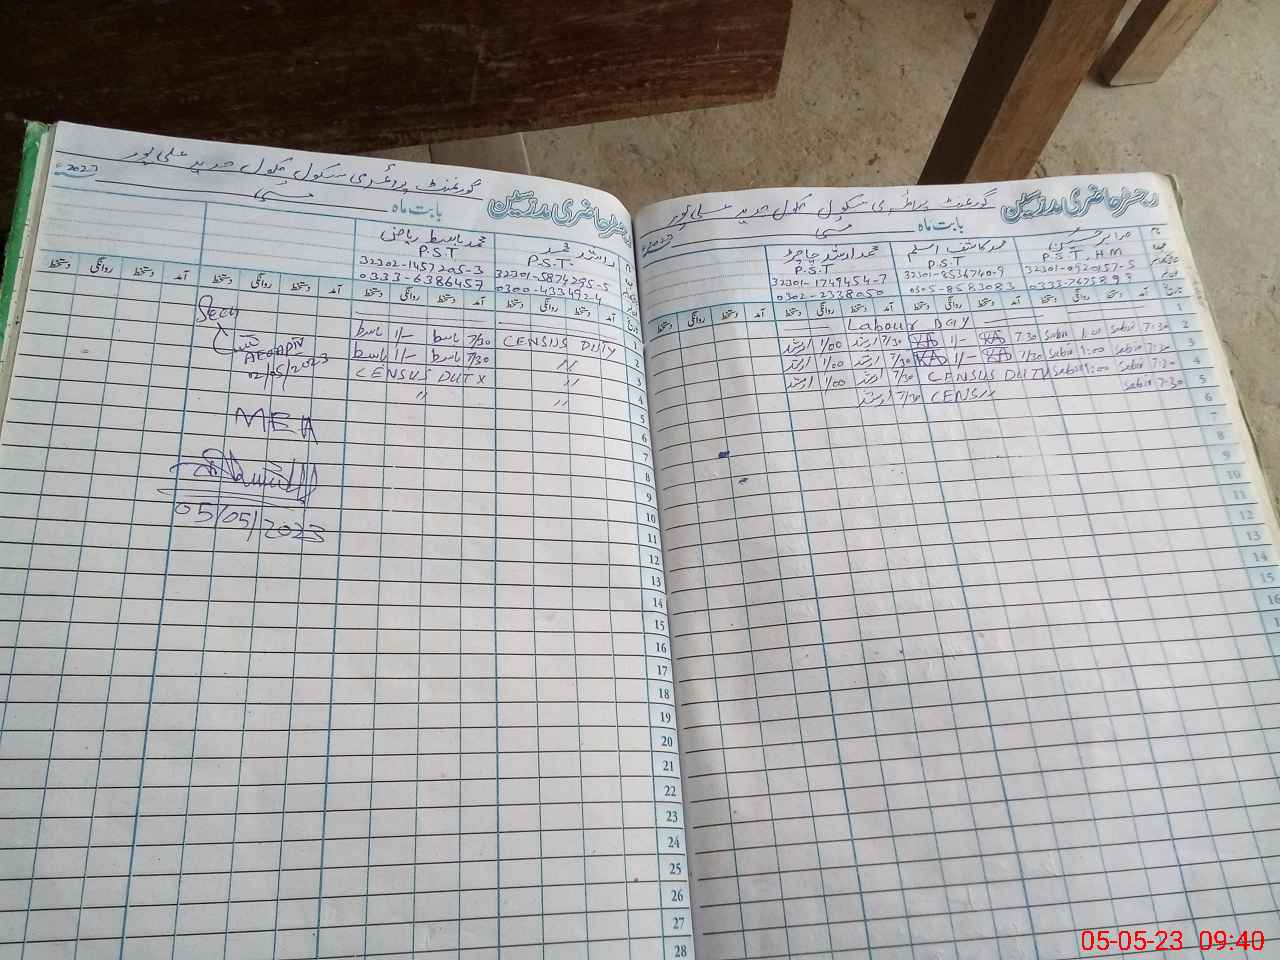 گورنمنٹ پرائمری سکول مکول جدید علی پور
رجسٹر حاضری مدرسین
بابت ماہ مئی 2023ء
محمد باسط ریاض
P.S.T
32302-1457205-3
0333-6386457
راشد
P.S.T.
32301-5874295-5
0300-4333492-4
آمد دستخط روانگی دستخط آمد دستخط روانگی دستخط آمد دستخط روانگی دستخط آمد دستخط روانگی دستخط
Seen
AEO
02/05/2023
MEA
05/05/2023
CENSUS DUTY
7/30 باسط 1/- باسط
〃
7/30 باسط 1/- باسط
〃
CENSUS DUTY
〃
〃
1
2
3
4
5
6
7
8
9
10
11
12
13
14
15
16
17
18
19
20
21
22
23
24
25
26
27
28
گورنمنٹ پرائمری سکول مکول جدید علی پور
رجسٹر حاضری مدرسین
بابت ماہ مئی
P.S.T, H.M
32301-0920157-5
0333-7675893
P.S.T
32301-8536740-9
0305-8583083
محمد ارشد چاچڑ
P.S.T
32301-1749454-7
0302-2338050
آمد دستخط روانگی دستخط آمد دستخط روانگی دستخط آمد دستخط روانگی دستخط
1 Labour Day
2 7:30 Sabir 1:00 Sabir 7:30 KA 1/- KA 7/30 ارشد 1/00 ارشد
3 7:30 Sabir 1:00 Sabir 7/30 KA 1/- KA 7/30 ارشد 1/00 ارشد
4 7:30 Sabir 1:00 Sabir CENSUS DUTY 7/30 ارشد 1/00 ارشد
5 7:30 Sabir CENSUS 7/30 ارشد
6
7
8
9
10
11
12
13
15
16
05-05-23 09:40